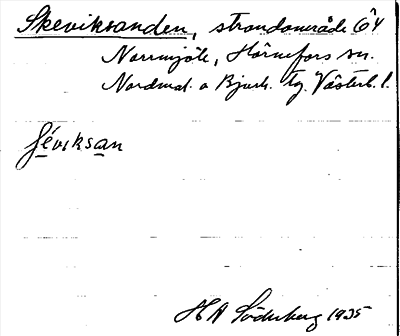 Skeviksanden, strandområde 6⁴
Norrmjöle, Hörnefors sn.
Nordmal. o Bjurh. tg. Västerb. l.
ʃéviksan
H A Söderberg 1935